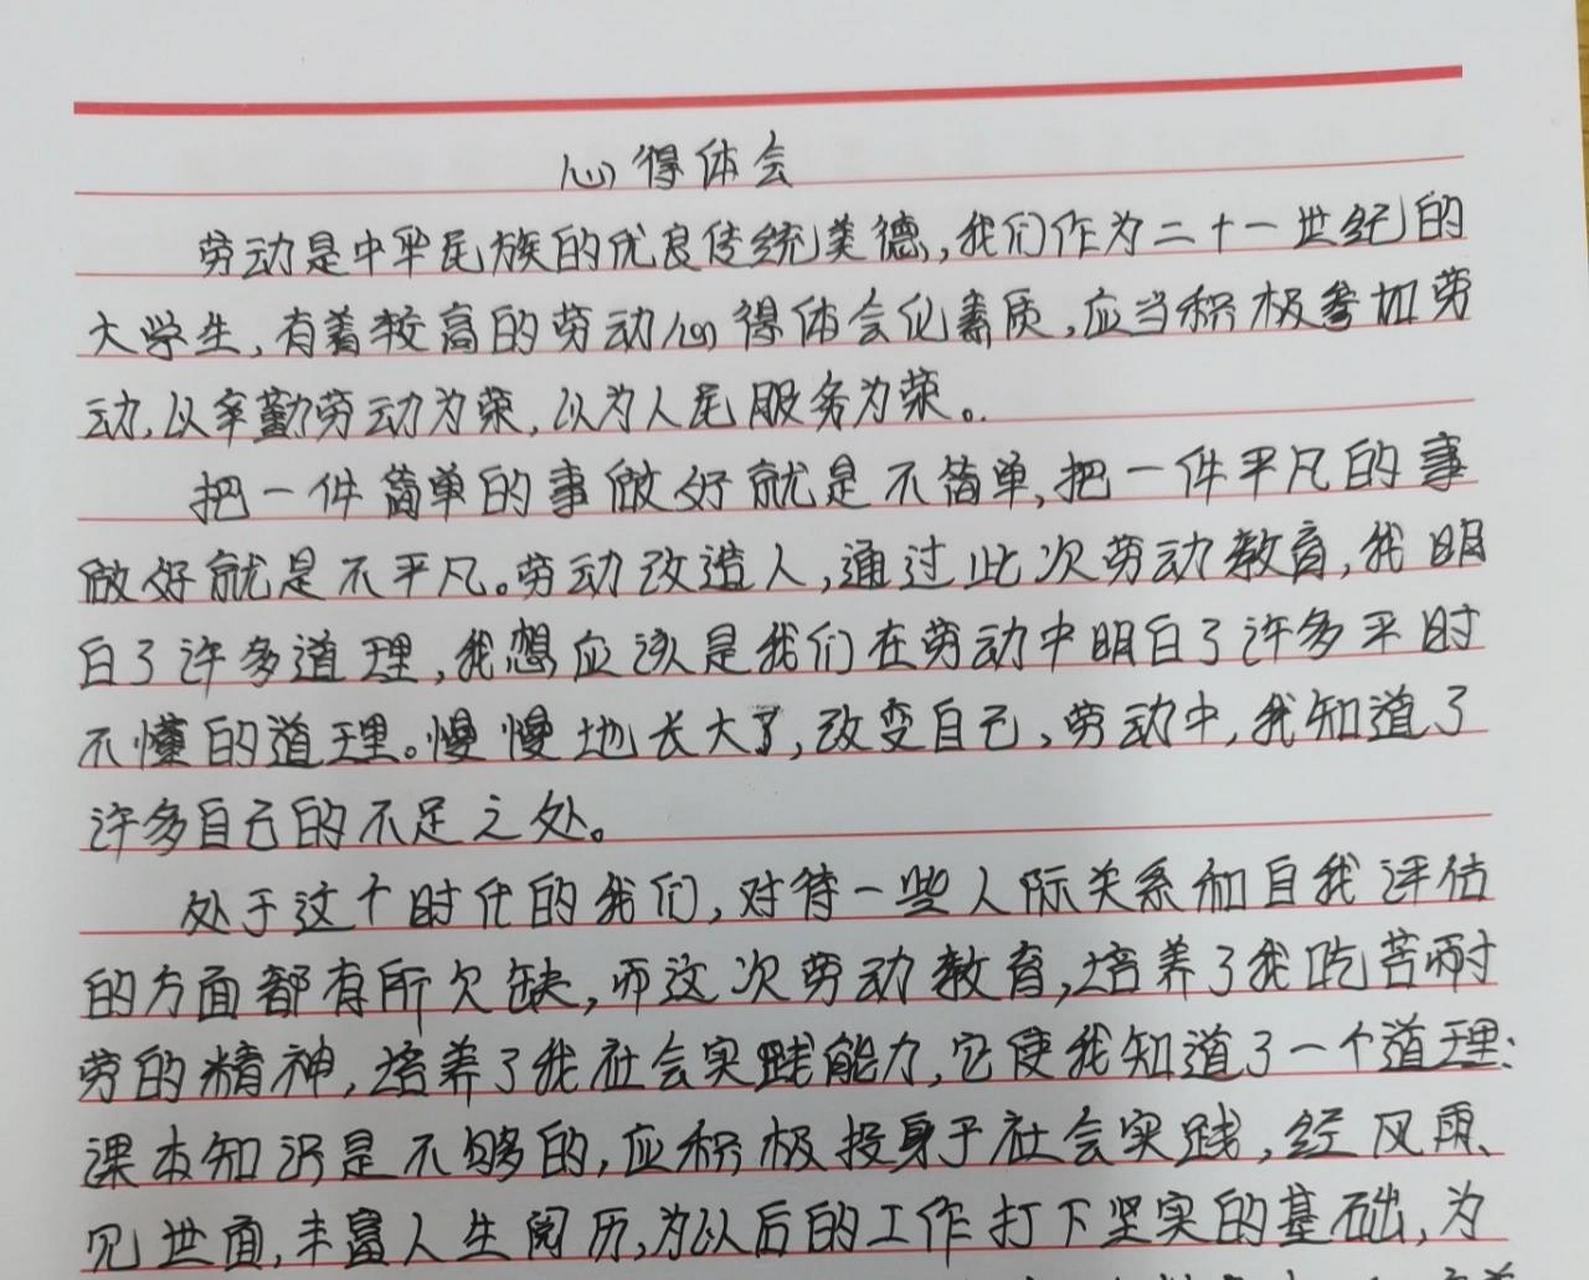 心得体会
劳动是中华民族的优良传统美德,我们作为二十一世纪的
大学生,有着较高的劳动心得体会化素质,应当积极参加劳
动,以辛勤劳动为荣,以为人民服务为荣。
把一件简单的事做好就是不简单,把一件平凡的事
做好就是不平凡。劳动改造人,通过此次劳动教育,我明
白了许多道理,我想应该是我们在劳动中明白了许多平时
不懂的道理。慢慢地长大了,改变自己,劳动中,我知道了
许多自己的不足之处。
处于这个时代的我们,对待一些人际关系和自我评估
的方面都有所欠缺,而这次劳动教育,培养了我吃苦耐
劳的精神,培养了我社会实践能力,它使我知道了一个道理:
课本知识是不够的,应积极投身于社会实践,经风雨、
见世面,丰富人生阅历,为以后的工作打下坚实的基础,为